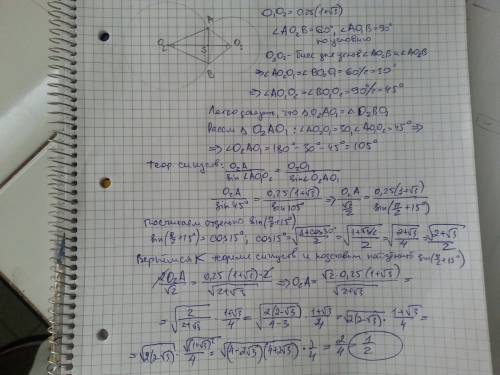 A
O₂
S
O₁
B
O₁O₂ = 0,25(1+√3)
∠AO₂B = 60°, ∠AO₁B = 90°
по условию
O₂O₁ - бисс для углов ∠AO₂B и ∠AO₁B
⇒ ∠AO₂O₁ = ∠BO₂O₁ = 60°/2 = 30°
⇒ ∠AO₁O₂ = ∠BO₁O₂ = 90°/2 = 45°
Легко доказать, что △O₂AO₁ = △O₂BO₁
Рассм △ O₂AO₁: ∠AO₂O₁ = 30, ∠AO₁O₂ = 45° ⇒
⇒ ∠O₂AO₁ = 180° - 30° - 45° = 105°
Теор. синусов: O₂A / sin∠AO₁O₂ = O₂O₁ / sin∠O₂AO₁
O₂A / sin45° = 0,25(1+√3) / sin105° ⇒ O₂A / (√2/2) = 0,25(1+√3) / sin(π/2+15°)
Посчитаем отдельно sin(π/2+15°)
sin(π/2+15°) = cos15°, cos15° = √((1+cos30°)/2) = √((1+√3/2)/2) = √((2+√3)/4) = √(2+√3)/2
Вернимся к теореме синусов и подставим найденый sin(π/2+15°)
2O₂A / √2 = 0,25(1+√3)·2 / √(2+√3) ⇒ O₂A = √2·0,25(1+√3) / √(2+√3) =
= √(2/(2+√3)) · (1+√3)/4 = √(2(2-√3)/(4-3)) · (1+√3)/4 = √(2(2-√3)) · (1+√3)/4 =
= √(2(2-√3)) · √((1+√3)²)/4 = √((4-2√3)(4+2√3)) · 1/4 = 2/4 = 1/2